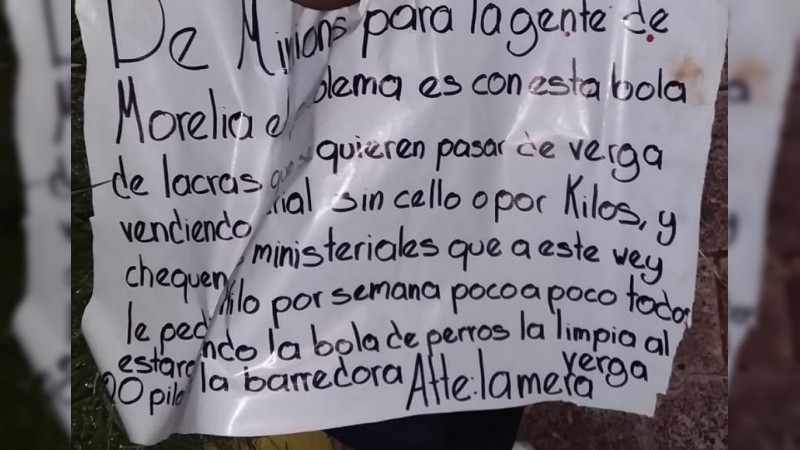 De Minions para la gente de
Morelia el blema es con esta bola
de lacras que se quieren pasar de verga
vendiendo rial sin cello o por Kilos, y
chequen ministeriales que a este wey
le ped kilo por semana poco a poco todos
estare ndo la bola de perros la limpia al
00 pilo la barredora Atte: la mera verga